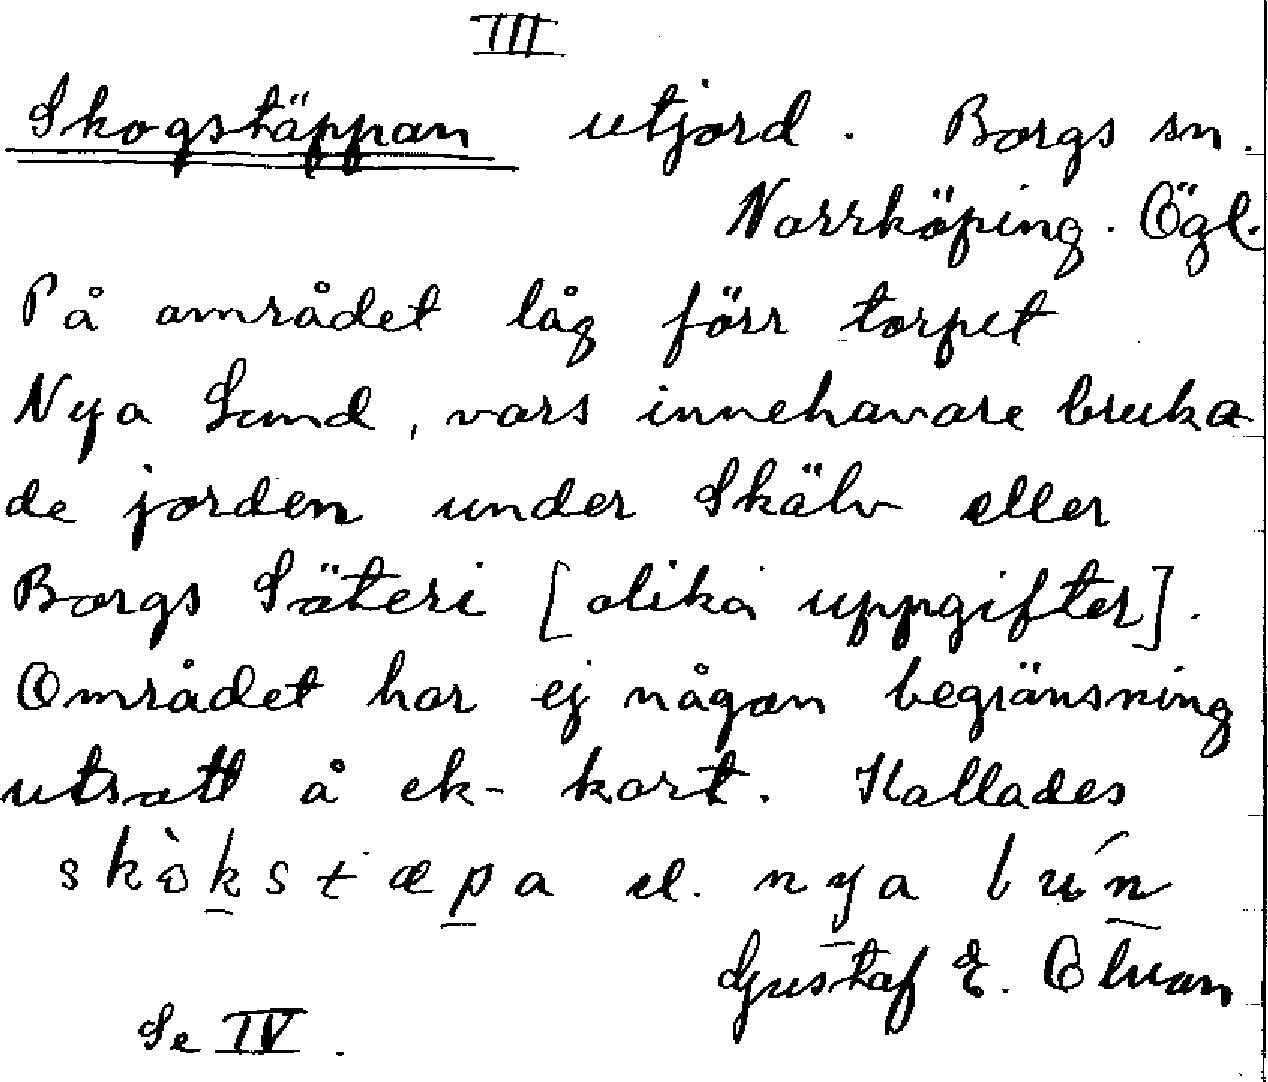 III
Skogstäppan utjord. Borgs sn.
Norrköping. Ögl.
På området låg förr torpet
Nya Lund, vars innehavare bruka-
de jorden under Skälv eller
Borgs Säteri [olika uppgifter].
Området har ej någon begränsning
utsatt å ek-kart. Kallades
skòkstæpa el. nya lún
Gustaf E.
Se IV.